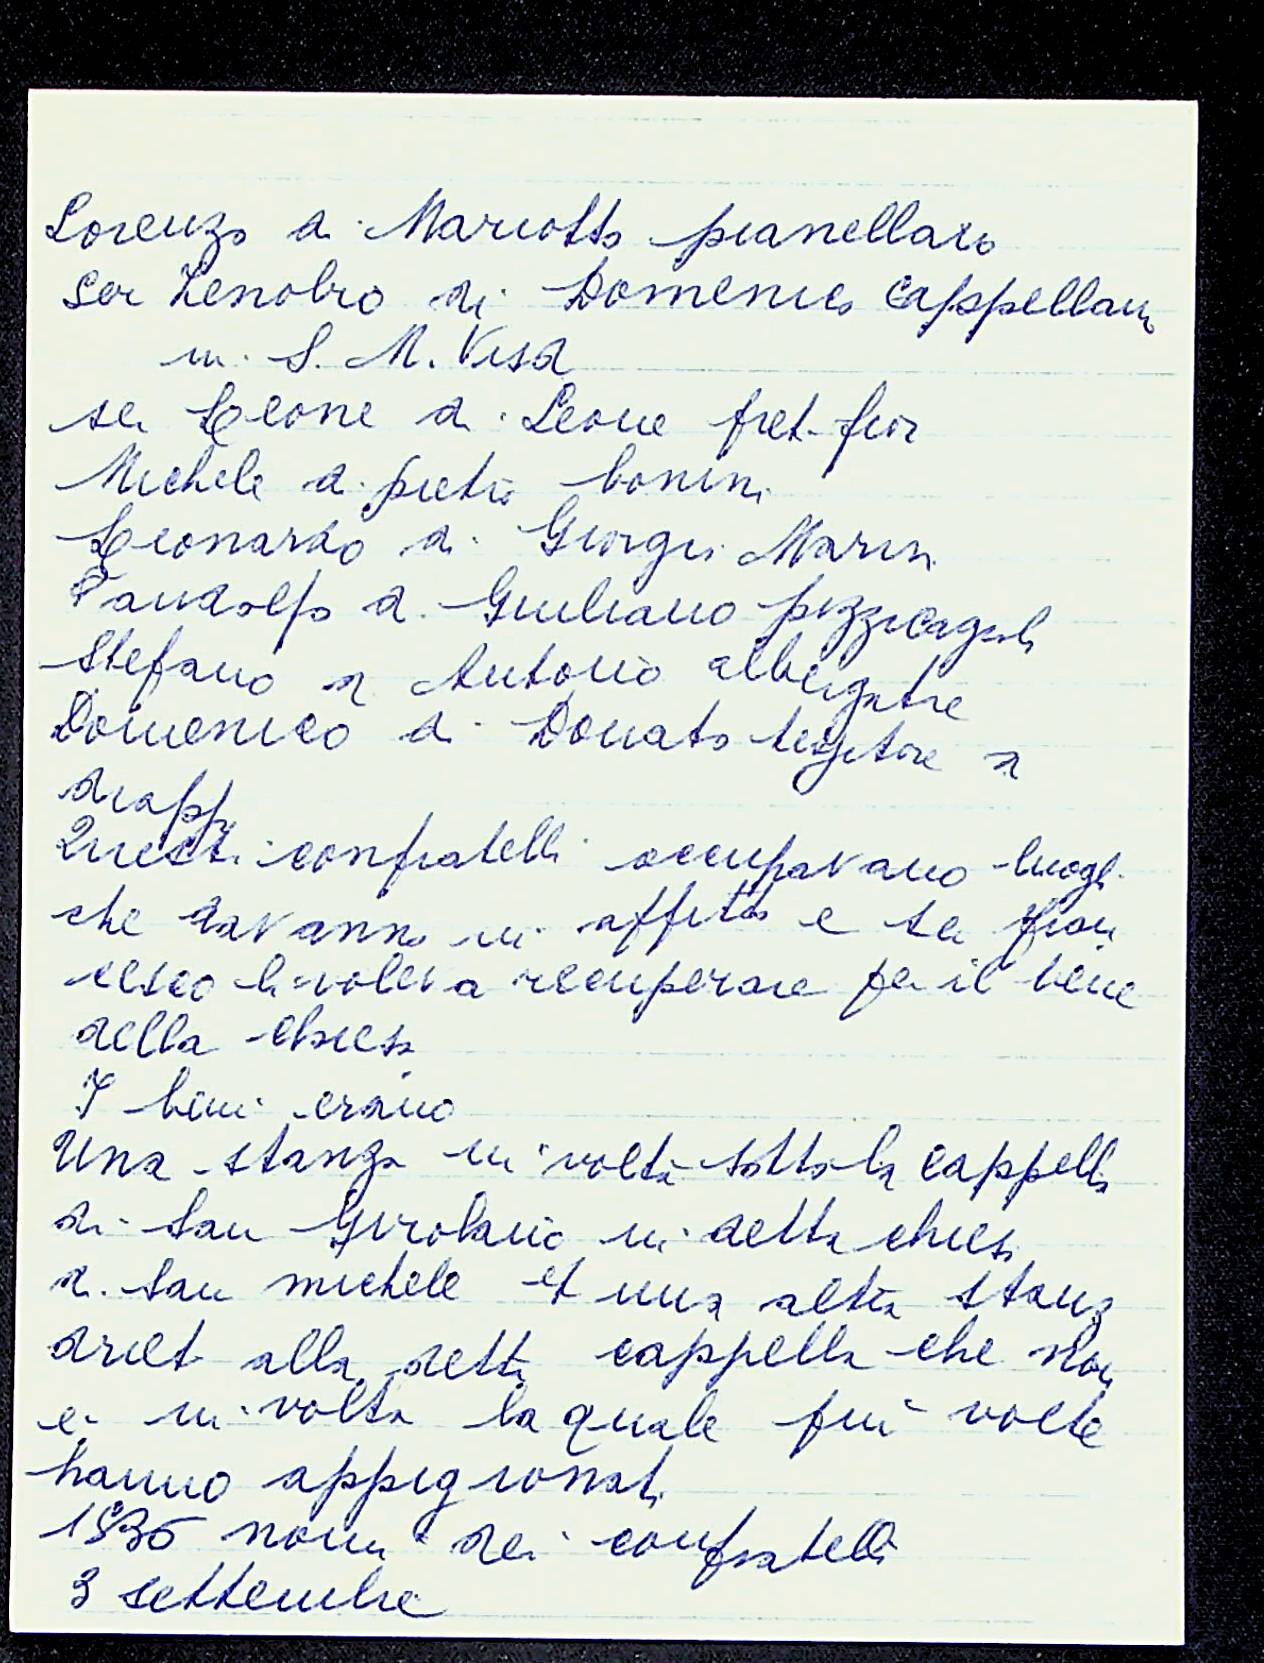 Lorenzo di Mariotto pianellaro
Ser Zenobio di Domenico cappellano
in S. M. Visd
ser Leone di Leone
Michele di pietro bonini
Leonardo di Giorgio Marini
Pandolfo di Giuliano pizzicagnoli
Stefano di Antonio albergatore
Domenico di Donato tessitore di
drappi
Questi confratelli occupavano luoghi
che davanno in affitto e ser Fran
cesco li voleva recuperare per il bene
della chiesa
I beni erano
Una stanza in volta sotto la cappella
di San Girolamo in detta chiesa
di San michele et una altra stanza
drieto alla detta cappella che non
e in volta la quale piu volte
hanno appigionato
nomi dei confratelli
3 settembre